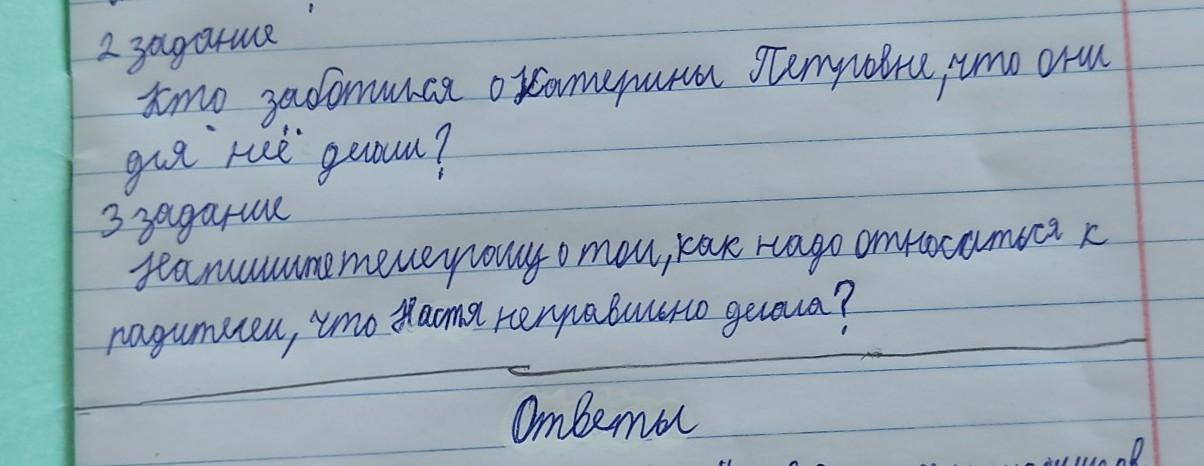 2 задание
Кто заботился о Катерины Петровне, что они
для неё делали?
3 задание
Напишите телеграмму о том, как надо относиться к
радителем, что Настя неправильно делала?
Ответы